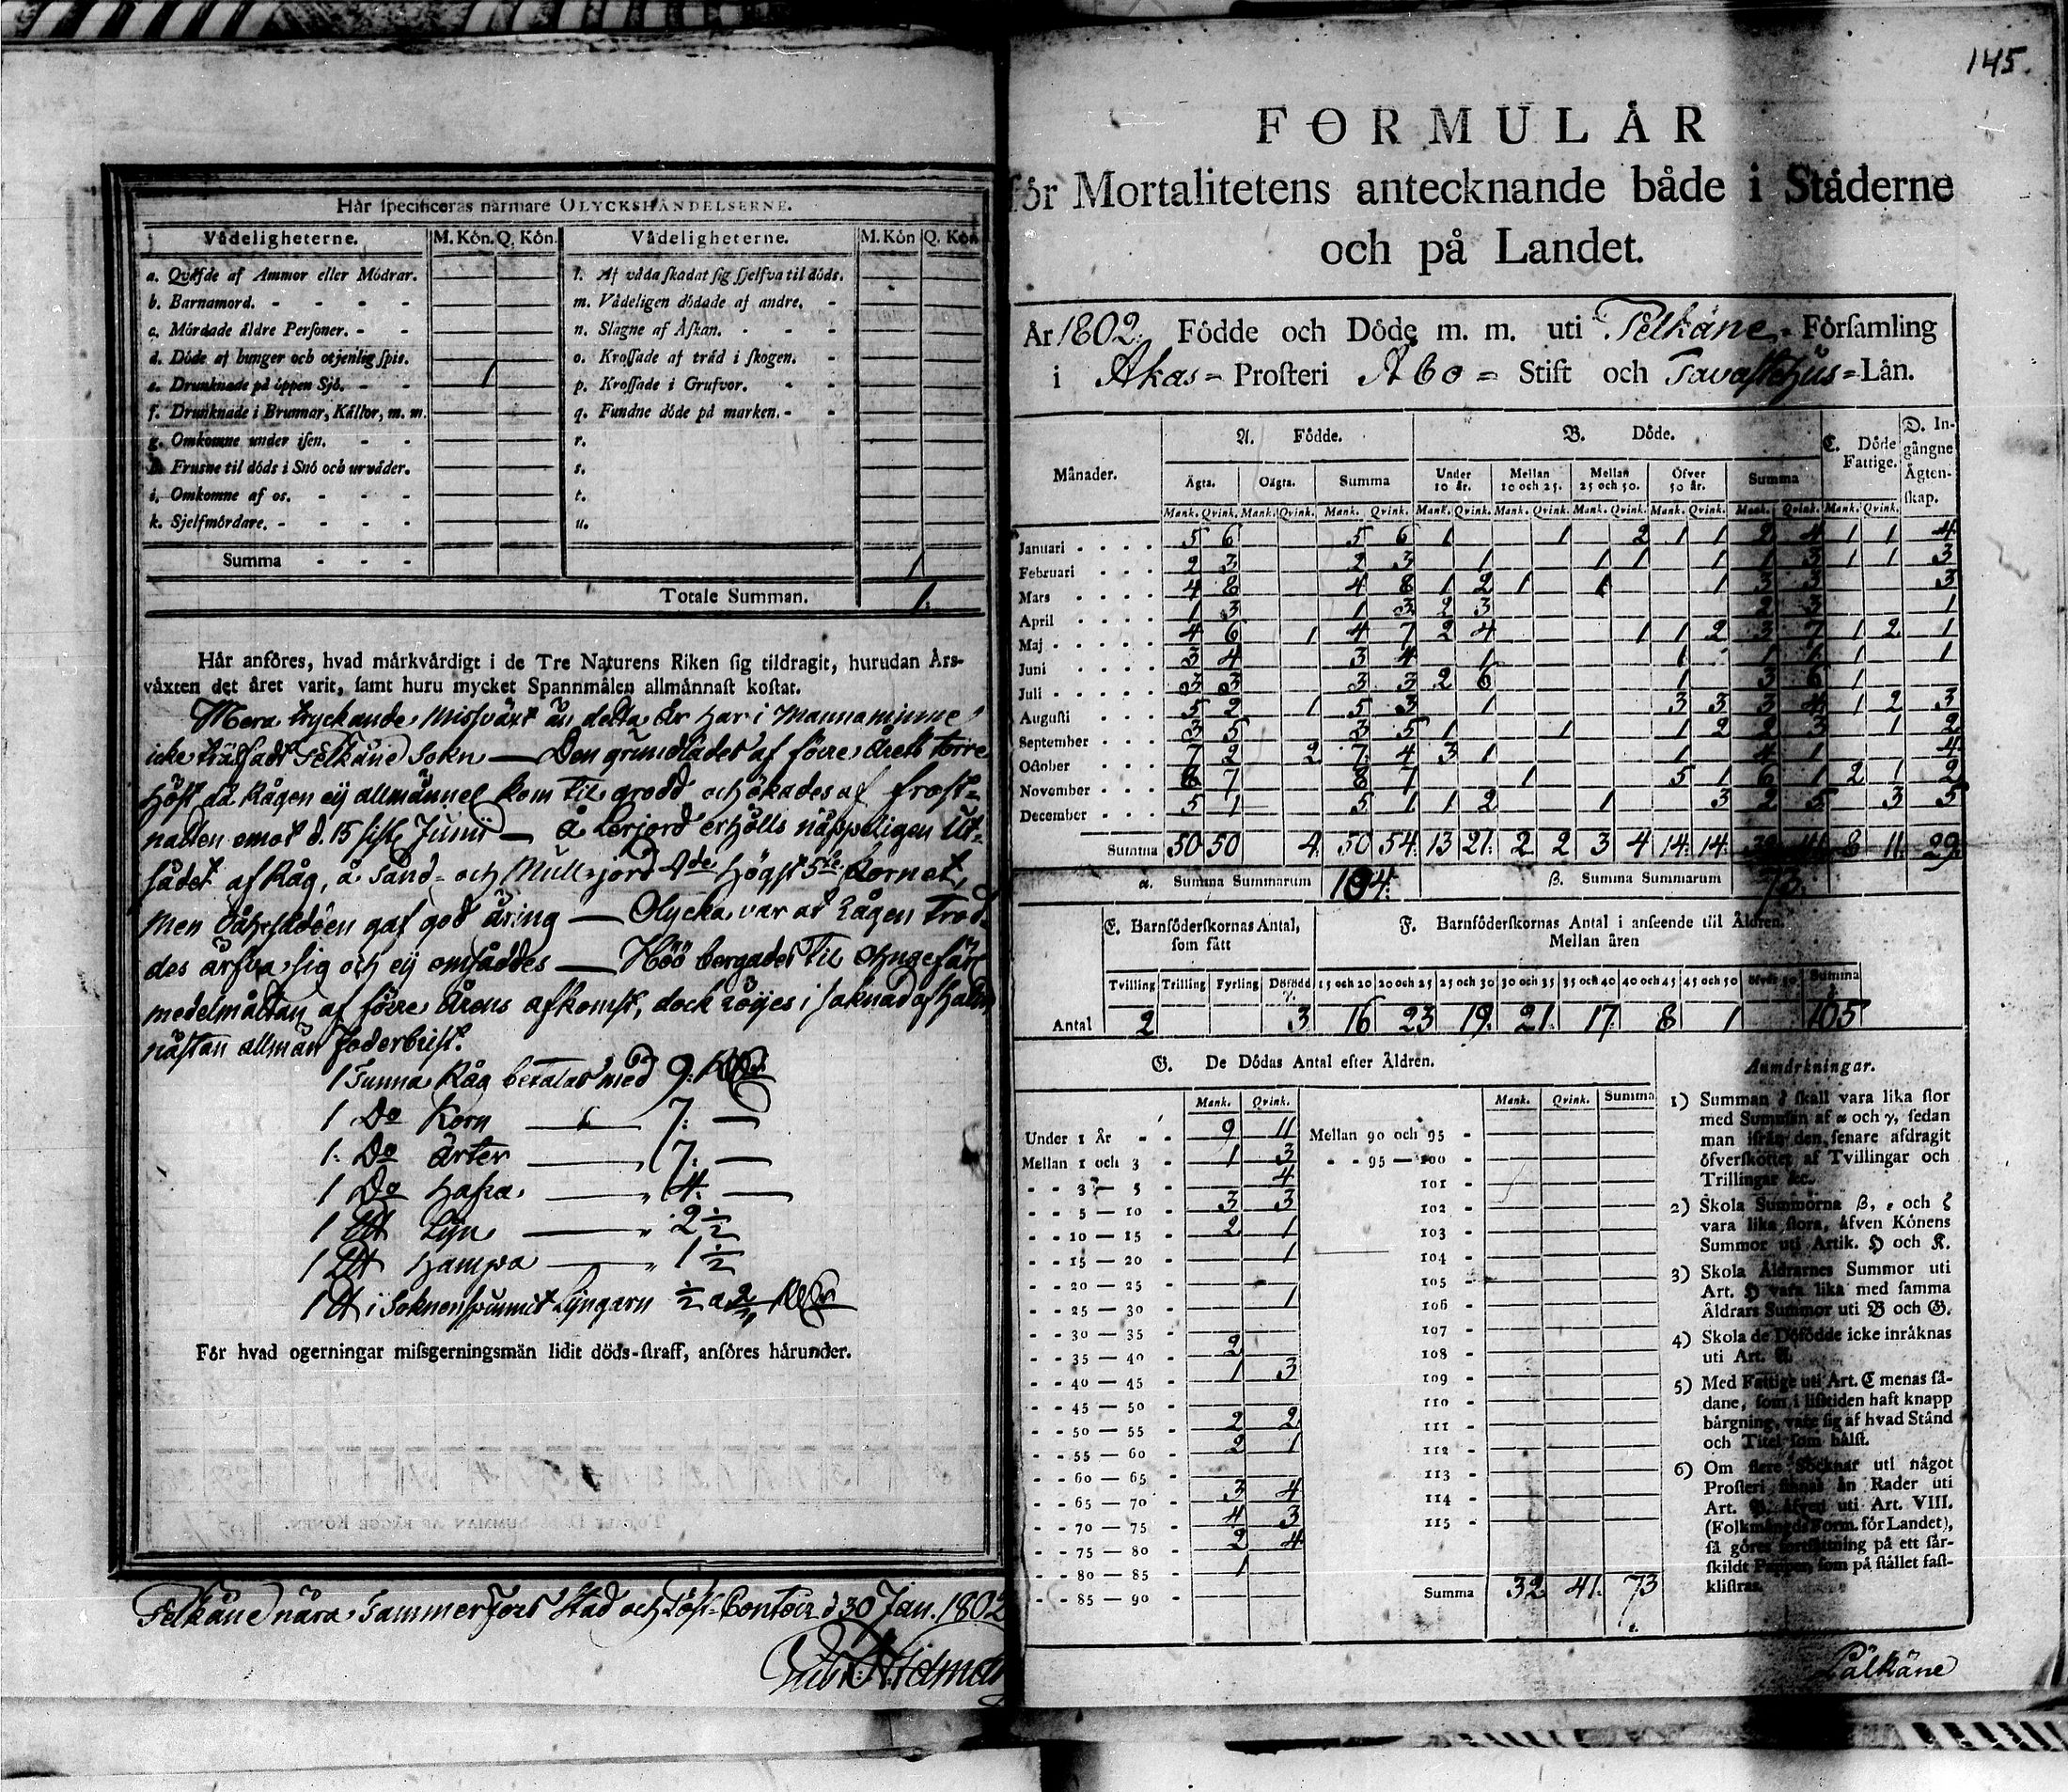 Här specificeras närmare OLYCKSHÄNDELSERNE.
Vådeligheterne. M. Kön. Q. Kön. Vådeligheterne. M. Kön Q. Kön
a. Qväfde af Ammor eller Mödrar. l. Af våda skadat sig sjelfva til döds.
b. Barnamord. - - - - m. Vådeligen dödade af andre. -
c. Mördade äldre Personer. - - n. Slagne af Åskan. - - -
d. Döde af hunger och otjenlig spis. o. Krossade af träd i skogen. -
e. Drunknade på öppen Sjö. - - 1 p. Krossade i Grufvor. - -
f. Drunknade i Brunnar, Källor, m. m. q. Fundne döde på marken. - -
g. Omkomne under isen. - - r.
h. Frusne til döds i Snö och urväder. s.
i. Omkomne af os. - - - t.
k. Sjelfmördare. - - - - u.
Summa - - - 1
Totale Summan. 1.
Här anföres, hvad märkvärdigt i de Tre Naturens Riken sig tildragit, hurudan Års-
växten det året varit, samt huru mycket Spannmålen allmännast kostat.
Mera tryckande Missväxt än detta År har i Mannaminne
icke träffadt Pelkäne Sokn — Den grundlades af förre Årets torre
Höst då Rågen ej allmännel kom til grodd och ökades af frost-
natten emot d. 15 sistl. Junii — å Lerjord erhölls näppeligen Ut-
sädet af Råg, å Sand- och Mull-jord 4de högst 5te Kornet,
men Vårsäden gaf god äring — Olycka var at Rågen trod-
des ärfva sig och ej omsåddes — Höö bergades til ohngefär
medelmåttan af förre Årens afkomst, dock röjes i saknad af halm
nästan allmän foderbrist.
1 Tunna Råg betalas med 9. Rdr
1 Do Korn — 7. —
1. Do Ärter — 7. —
1 Do Hafra — 4. —
1 L℔ Lijn — 2½
1 L℔ Hampa — 1½
1 ℔ i Soknen spunnit Lijngarn ½ a 2/3 Rdr
För hvad ogerningar missgerningsmän lidit döds-straff, anföres härunder.
TOTALE DÖDS-SUMMAN AF BÄGGE KÖNEN.
Pelkäne nära Tammerfors Stad och Post-Contoir d 30 Jan. 1802
145.
FORMULÄR
för Mortalitetens antecknande både i Städerne
och på Landet.
År 1802. Födde och Döde m. m. uti Pelkäne - Församling
i Akas = Prosteri Åbo = Stift och Tavastehus = Län.
Månader. A. Födde. B. Döde. C. Döde Fattige. D. Ingångne Ägtenskap.
Ägta. Oägta. Summa Under 10 år. Mellan 10 och 25. Mellan 25 och 50. Öfver 50 år. Summa
Mank. Qvink. Mank. Qvink. Mank. Qvink. Mank. Qvink. Mank. Qvink. Mank. Qvink. Mank. Qvink. Mank. Qvink. Mank. Qvink.
Januari . . . . 5 6 5 6 1 1 2 1 1 2 4 1 1 4
Februari . . . 2 3 2 3 1 1 1 1 1 3 1 1 3
Mars . . . . 4 8 4 8 1 2 1 1 1 3 3 3
April . . . . 1 3 1 3 2 3 2 3 1
Maj . . . . 4 6 1 4 7 2 4 1 1 2 3 7 1 2 1
Juni . . . . 3 4 3 4 1 1 1 1 1 1
Juli . . . . 3 3 3 3 2 6 1 3 6 1
Augusti . . . 5 2 1 5 3 1 3 3 3 4 1 2 3
September . . . 3 5 3 5 1 1 1 2 2 3 1 2
October . . . 7 2 2 7 4 3 1 1 4 1 4
November . . . 8 7 8 7 1 5 1 6 1 2 1 2
December . . . 5 1 5 1 1 2 1 3 2 5 3 5
Summa 50 50 4 50 54 13 21 2 2 3 4 14 14 32 41 8 11 29
α. Summa Summarum 104. β. Summa Summarum 73.
E. Barnföderskornas Antal, som fått F. Barnföderskornas Antal i anseende til Åldren. Mellan åren
Tvilling Trilling Fyrling Döfödd γ. 15 och 20 20 och 25 25 och 30 30 och 35 35 och 40 40 och 45 45 och 50 öfver 50 Summa
Antal 2 3 16 23 19 21 17 8 1 105
G. De Dödas Antal efter Åldren.
Mank. Qvink. Mank. Qvink. Summa
Under 1 År - - 9 11 Mellan 90 och 95 -
Mellan 1 och 3 - 1 3 - - 95 — 100 -
- - 3 — 5 - 4 101 -
- - 5 — 10 - 3 3 102 -
- - 10 — 15 - 2 1 103 -
- - 15 — 20 - 1 104 -
- - 20 — 25 - 105 -
- - 25 — 30 - 1 106 -
- - 30 — 35 - 107 -
- - 35 — 40 - 2 108 -
- - 40 — 45 - 1 3 109 -
- - 45 — 50 - 110 -
- - 50 — 55 - 2 2 111 -
- - 55 — 60 - 2 1 112 -
- - 60 — 65 - 113 -
- - 65 — 70 - 3 4 114 -
- - 70 — 75 - 4 3 115 -
- - 75 — 80 - 2 4
- - 80 — 85 - 1
- - 85 — 90 - Summa 32 41. 73
Anmärkningar.
1) Summan δ skall vara lika stor
med Summan af α och γ, sedan
man ifrån den senare afdragit
öfverskottet af Tvillingar och
Trillingar &c.
2) Skola Summorna β, ε och ζ
vara lika stora, äfven Könens
Summor uti Artik. H och K.
3) Skola Åldrarnes Summor uti
Art. H vara lika med samma
Åldrars Summor uti B och G.
4) Skola de Döfödde icke inräknas
uti Art. A.
5) Med Fattige uti Art. C menas så-
dane, som i lifstiden haft knapp
bärgning, vare sig af hvad Stånd
och Titel som hälst.
6) Om flere Socknar uti något
Prosteri finnas än Rader uti
Art. äfven uti Art. VIII.
(Folkmängds Form. för Landet),
så göres fortsättning på ett sär-
skildt Papper, som på stället fast-
klistras.
Pälkäne